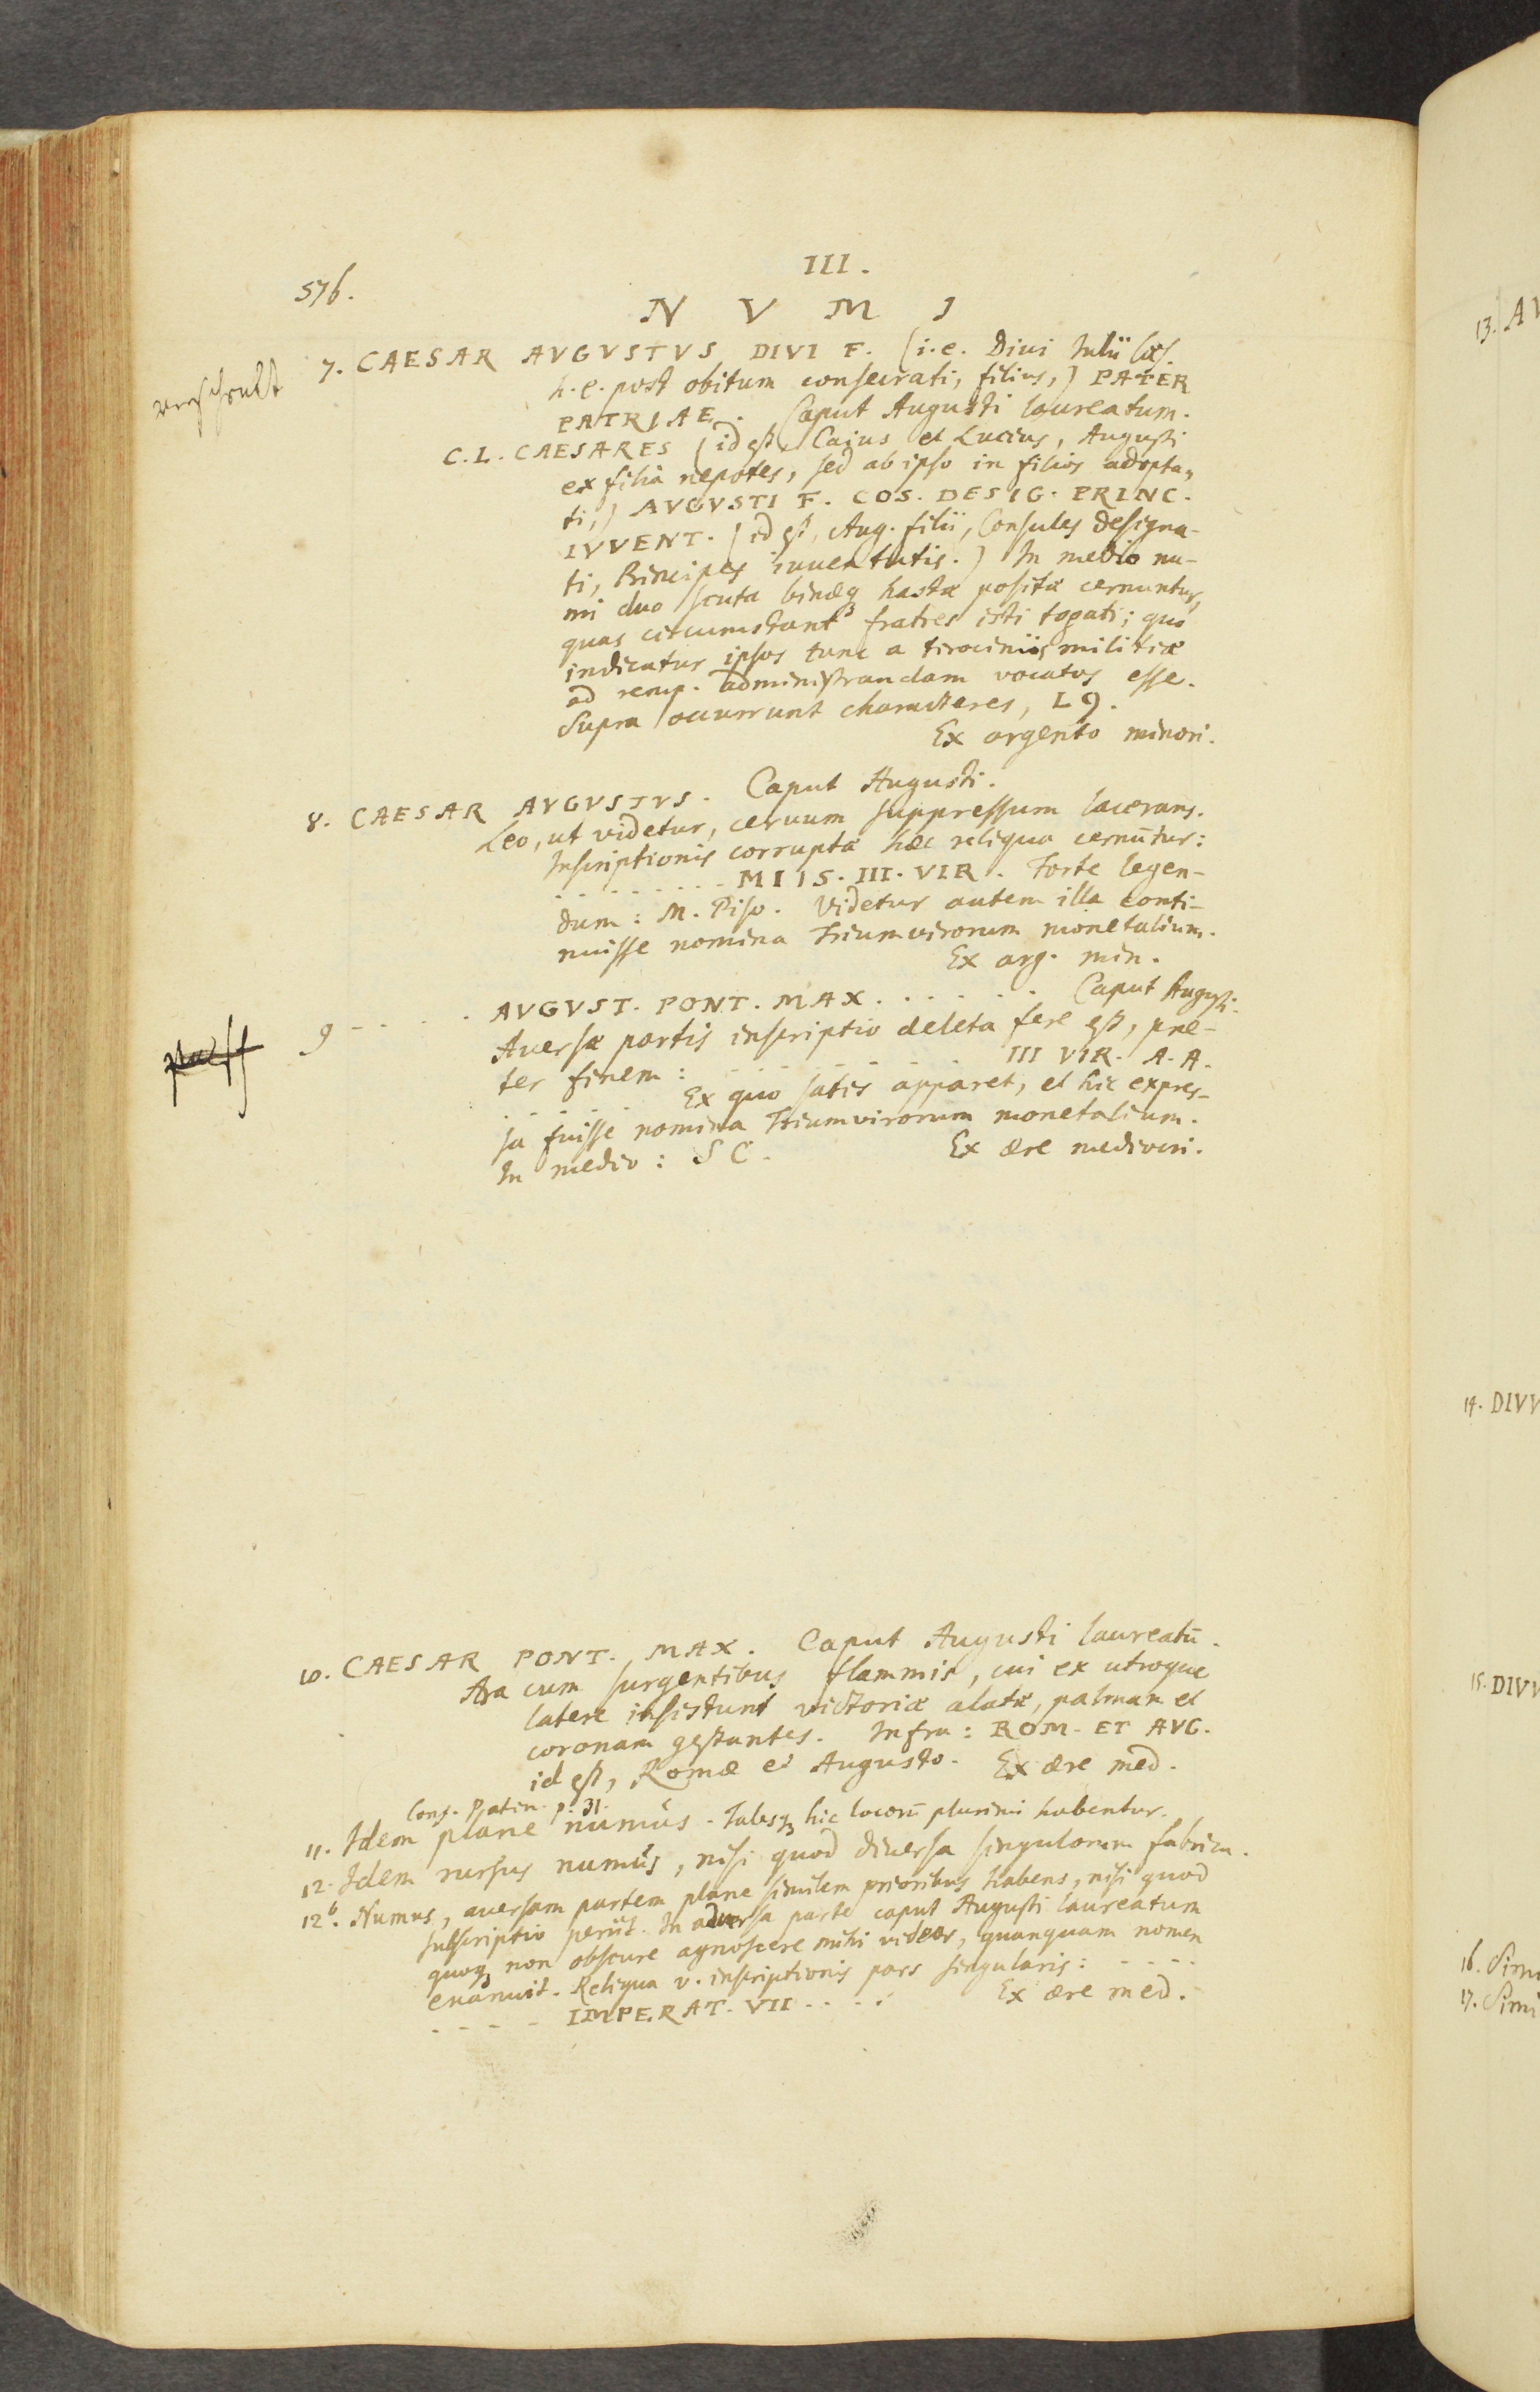 III.
576.
N V M I
7. CAESAR AVGVSTVS DIVI F. (i.e. Divi Julii Cæs.
h.e. post obitum consecrati, filius,) PATER
PATRIAE. Caput Augusti laureatum.
C.L. CAESARES (id est, Caius et Lucius, Augusti
ex filia nepotes, sed ab ipso in filios adopta-
ti,) AVGVSTI F. COS. DESIG. PRINC.
IVVENT. (id est, Aug. filii, Consules designa-
ti, Principes iuuentutis.) In medio nu-
mi duo scuta binæq; hastæ positæ cernuntur,
quas circumstant fratres isti togati; quo
indicatur ipsos tunc a tirociniis militiæ
ad remp. administrandam vocatos esse.
Supra occurrunt characteres, L9.
Ex argento minori.
8. CAESAR AVGVSTVS. Caput Augusti.
Leo, ut videtur, ceruum suppressum lacerans.
Inscriptionis corruptæ hæc reliqua cernūtur:
. . . . . . . . MIIS. III. VIR. Forte legen-
dum: M. Piso. Videtur autem illa conti-
nuisse nomina Triumvirorum monetalium.
Ex arg. min.
9 - - . . . AVGVST. PONT. MAX. . . . . . . Caput Augusti.
Auersæ partis inscriptio deleta fere est, præ-
ter finem: . . . . . . . . III VIR. A. A.
. . . . . Ex quo satis apparet, et hic expres-
sa fuisse nomina Triumvirorum monetalium.
In medio: S C. Ex ære mediocri.
10. CAESAR PONT. MAX. Caput Augusti laureatū.
Ara cum surgentibus flammis, cui ex utroque
latere insistunt victoriæ alatæ, palmam et
coronam gestantes. Infra: ROM. ET AVG.
id est, Romæ et Augusto. Ex ære med.
Conf. Patin. p. 31.
11. Idem plane numus. Talesq; hic locorū plurimi habentur.
12. Idem rursus numus, nisi quod diuersa singulorum fabrica.
12b. Numus, auersam partem plane similem prioribus habens, nisi quod
subscriptio periit. In aduersa parte caput Augusti laureatum
quoq; non obscure agnoscere mihi videor, quanquam nomen
euanuit. Reliqua v. inscriptionis pars singularis: - - - -
- - - - IMPERAT. VII . . . . Ex ære med.
13. AV
14. DIVV
15. DIVV
16. Simi
17. Simi